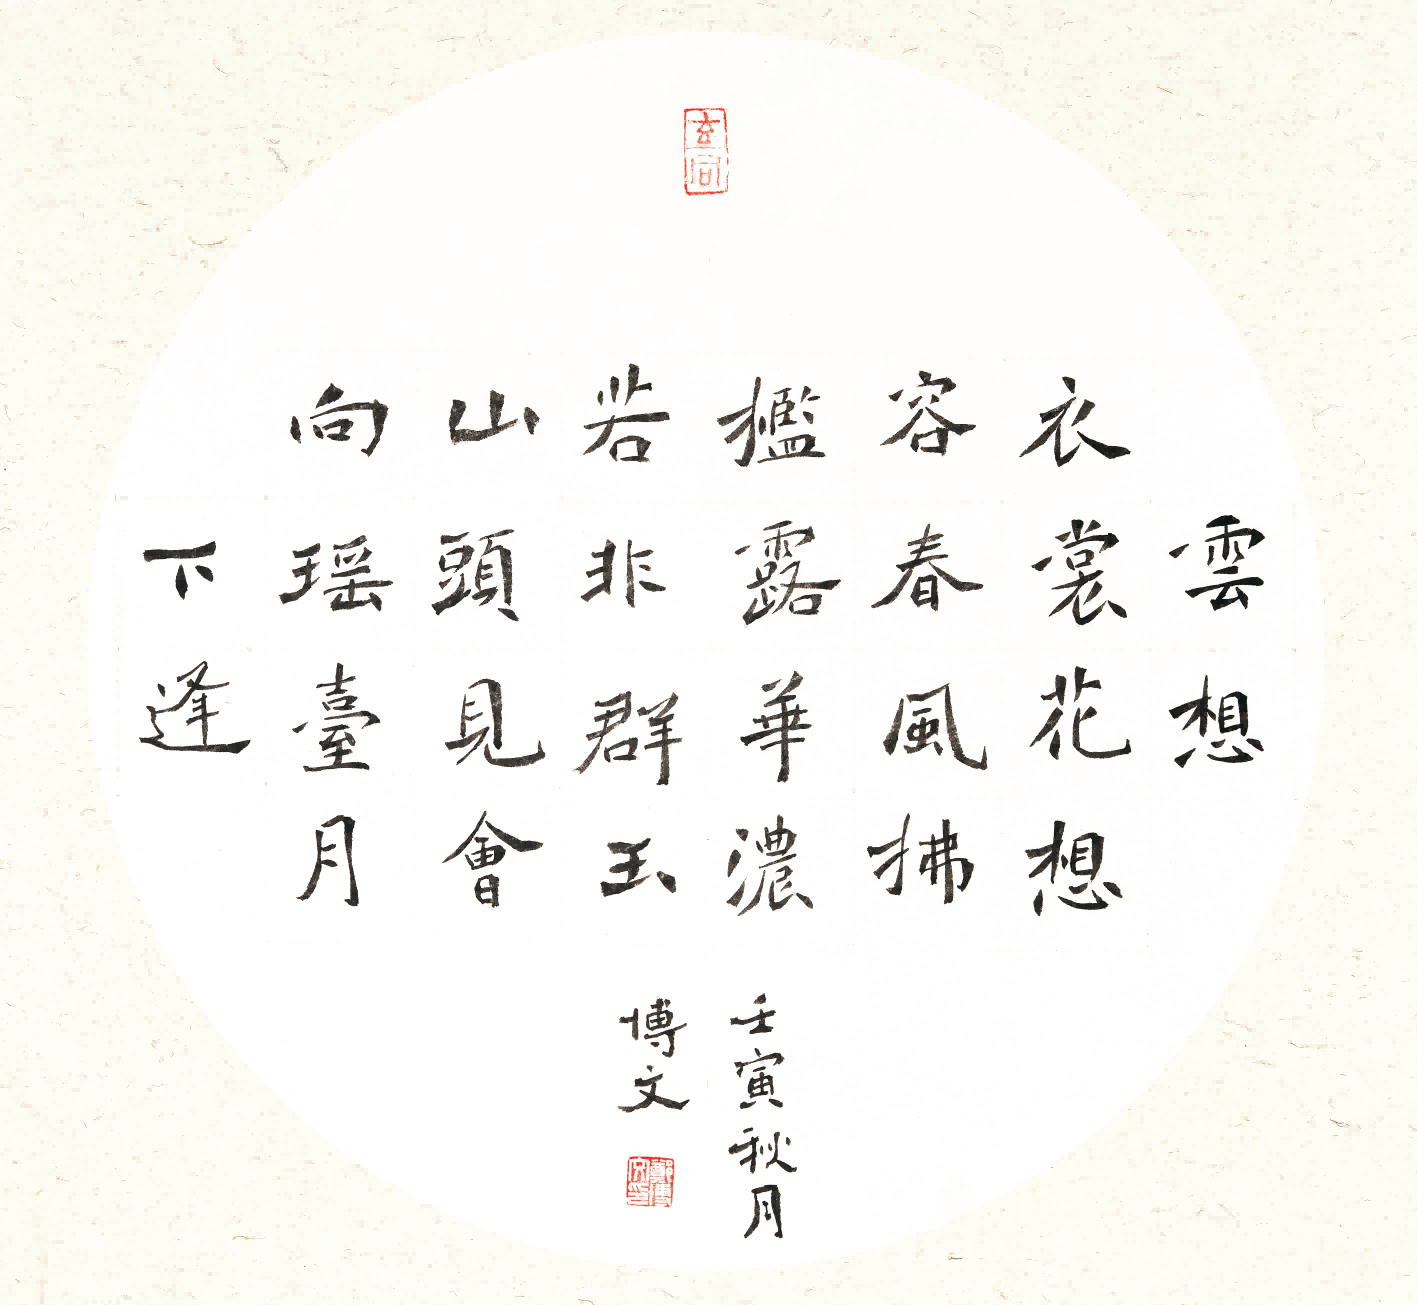 玄同
雲想
衣裳花想
容春風拂
檻露華濃
若非群玉
山頭見會
向瑶臺月
下逢
壬寅秋月
博文
鄭博文印